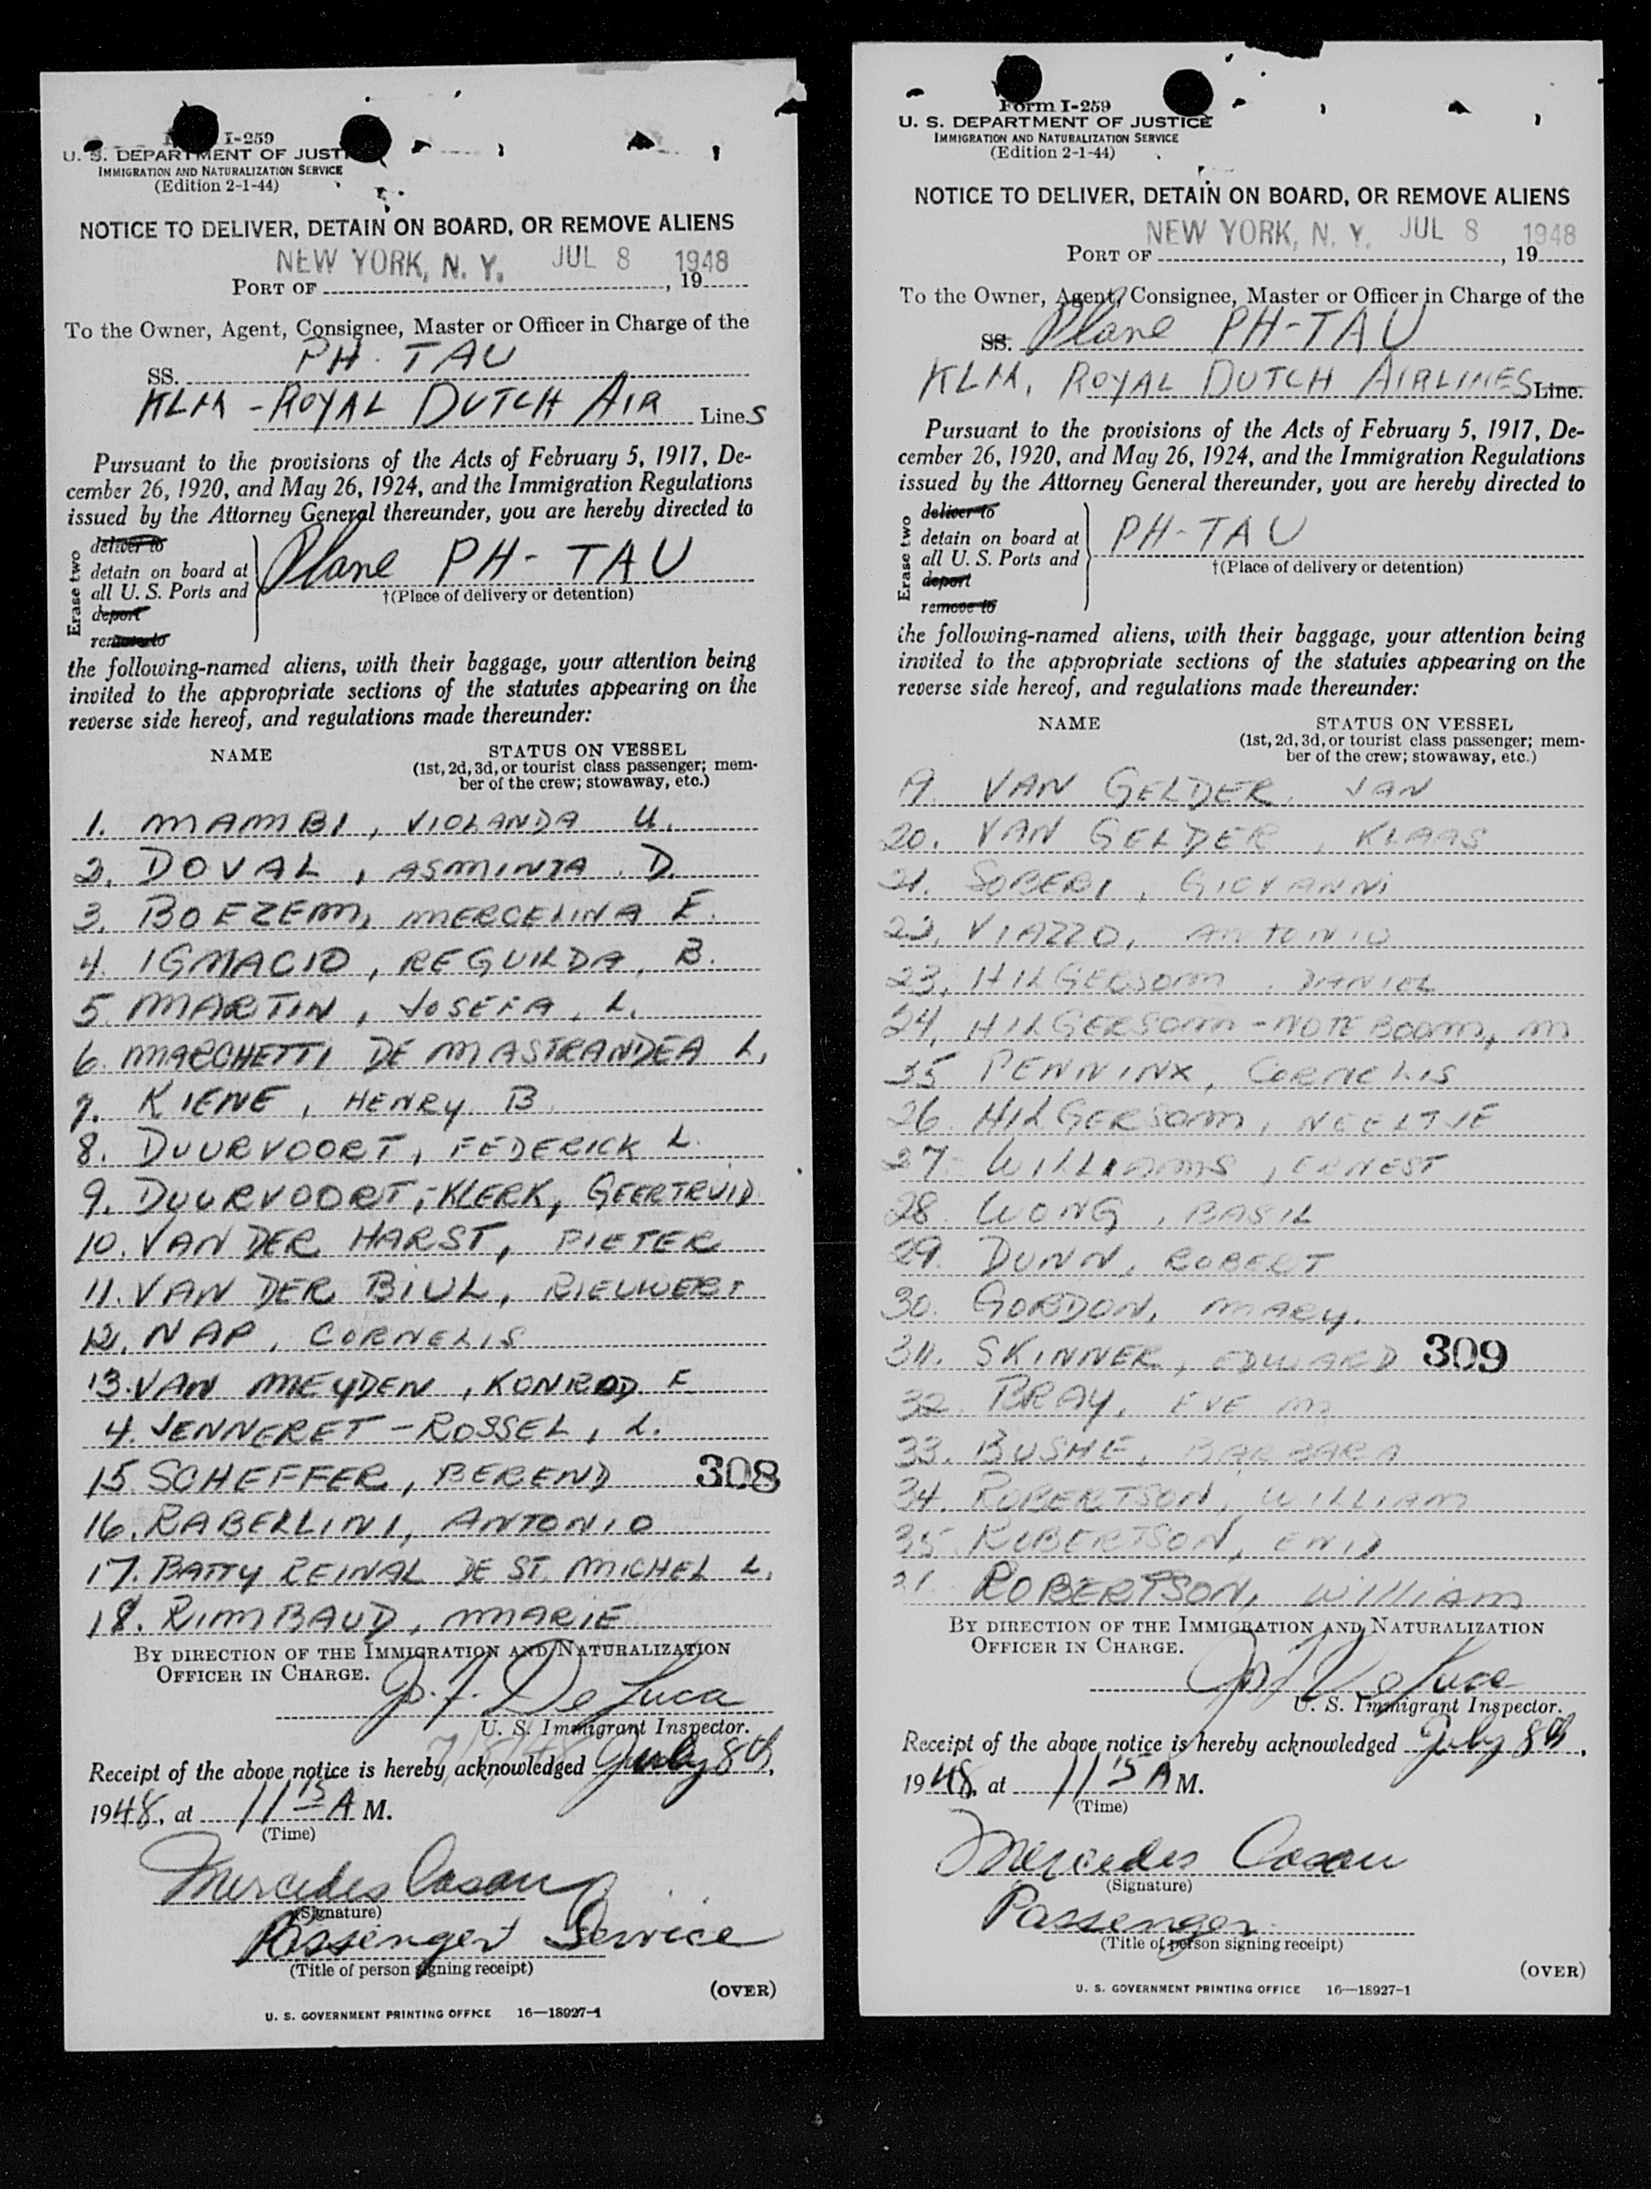 I-259
U. S. DEPARTMENT OF JUST
IMMIGRATION AND NATURALIZATION SERVICE
(Edition 2-1-44)
NOTICE TO DELIVER, DETAIN ON BOARD, OR REMOVE ALIENS
NEW YORK, N. Y. JUL 8 1948
PORT OF , 19
To the Owner, Agent, Consignee, Master or Officer in Charge of the
SS. PH-TAU
KLM - ROYAL DUTCH AIR LineS
Pursuant to the provisions of the Acts of February 5, 1917, De-
cember 26, 1920, and May 26, 1924, and the Immigration Regulations
issued by the Attorney General thereunder, you are hereby directed to
Erase two
deliver to
detain on board at
all U. S. Ports and
deport
remove to
Plane PH-TAU
†(Place of delivery or detention)
the following-named aliens, with their baggage, your attention being
invited to the appropriate sections of the statutes appearing on the
reverse side hereof, and regulations made thereunder:
NAME STATUS ON VESSEL
(1st, 2d, 3d, or tourist class passenger; mem-
ber of the crew; stowaway, etc.)
1. MAMBI, VIOLANDA U.
2. DOVAL, ASMINTA D.
3. BOEZEM, MERCELINA E.
4. IGMACIO, REGUILDA, B.
5. MARTIN, JOSEFA, L.
6. MARCHETTI DE MASTRANDEA L.
7. KIENE, HENRY B
8. DUURVOORT, FEDERICK L.
9. DUURVOORT,-KLERK, GEERTRUID
10. VAN DER HARST, PIETER
11. VAN DER BIUL, RIEUWERT
12. NAP, CORNELIS
13. VAN MEYDEN, KONRAD F
4. JENNERET-ROSSEL, L.
15 SCHEFFER, BEREND 308
16. RABELLINI, ANTONIO
17. BATTY REINAL DE ST. MICHEL L.
18. RIMBAUD, MARIE
BY DIRECTION OF THE IMMIGRATION AND NATURALIZATION
OFFICER IN CHARGE.
J. F. De Luca
U. S. Immigrant Inspector.
Receipt of the above notice is hereby acknowledged July 8th,
1948, at 11 15 A M.
(Time)
Mercedes Casau
(Signature)
Passenger Service
(Title of person signing receipt)
(OVER)
U. S. GOVERNMENT PRINTING OFFICE 16—18927-1
Form I-259
U. S. DEPARTMENT OF JUSTICE
IMMIGRATION AND NATURALIZATION SERVICE
(Edition 2-1-44)
NOTICE TO DELIVER, DETAIN ON BOARD, OR REMOVE ALIENS
NEW YORK, N. Y. JUL 8 1948
PORT OF , 19
To the Owner, Agent, Consignee, Master or Officer in Charge of the
SS. Plane PH-TAU
KLM, ROYAL DUTCH AIRLINES Line.
Pursuant to the provisions of the Acts of February 5, 1917, De-
cember 26, 1920, and May 26, 1924, and the Immigration Regulations
issued by the Attorney General thereunder, you are hereby directed to
Erase two
deliver to
detain on board at
all U. S. Ports and
deport
remove to
PH-TAU
†(Place of delivery or detention)
the following-named aliens, with their baggage, your attention being
invited to the appropriate sections of the statutes appearing on the
reverse side hereof, and regulations made thereunder:
NAME STATUS ON VESSEL
(1st, 2d, 3d, or tourist class passenger; mem-
ber of the crew; stowaway, etc.)
19. VAN GELDER, JAN
20. VAN GELDER, KLAAS
21. SOBERI, GIOVANNI
22. VIAZZO, ANTONIO
23. HILGERSOM, DANIEL
24. HILGERSOM-NOTEBOOM, M
25 PENNINX, CORNELIS
26. HILGERSOM, NEELTJE
27. WILLIAMS, ERNEST
28. WONG, BASIL
29. DUNN, ROBERT
30. GORDON, MARY.
31. SKINNER, EDWARD 309
32. BRAY, EVE M
33. BUSHE, BARBARA
34. ROBERTSON, WILLIAM
35 ROBERTSON, ENID
ROBERTSON, WILLIAM
BY DIRECTION OF THE IMMIGRATION AND NATURALIZATION
OFFICER IN CHARGE.
De Luca
U. S. Immigrant Inspector.
Receipt of the above notice is hereby acknowledged July 8th,
1948, at 11 15 A M.
(Time)
Mercedes Casau
(Signature)
Passenger
(Title of person signing receipt)
(OVER)
U. S. GOVERNMENT PRINTING OFFICE 16—18927-1